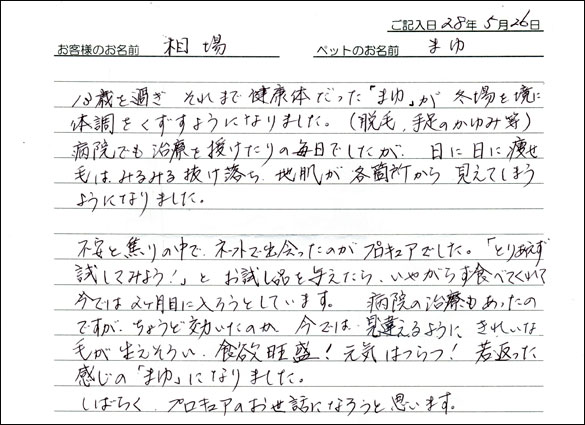 ご記入日 28年 5月 26日
お客様のお名前 相場 ペットのお名前 まゆ
13歳を過ぎ それまで健康体だった「まゆ」が 冬場を境に
体調をくずすようになりました。(脱毛、手足のかゆみ等)
病院でも治療を授けたりの毎日でしたが、日に日に痩せ
毛は、みるみる抜け落ち、地肌が各箇所から 見えてしまう
ようになりました。
不安と焦りの中で、ネットで出会ったのがプロキュアでした。「とりあえず
試してみよう!」と お試し品を与えたら、いやがらず食べてくれて
今では 2ヶ月目に入ろうとしています。 病院の治療もあったの
ですが、ちょうど効いたのか 今では、見違えるように きれいな
毛が生えそろい、食欲旺盛! 元気はつらつ! 若返った
感じの「まゆ」になりました。
しばらく、プロキュアのお世話になろうと思います。